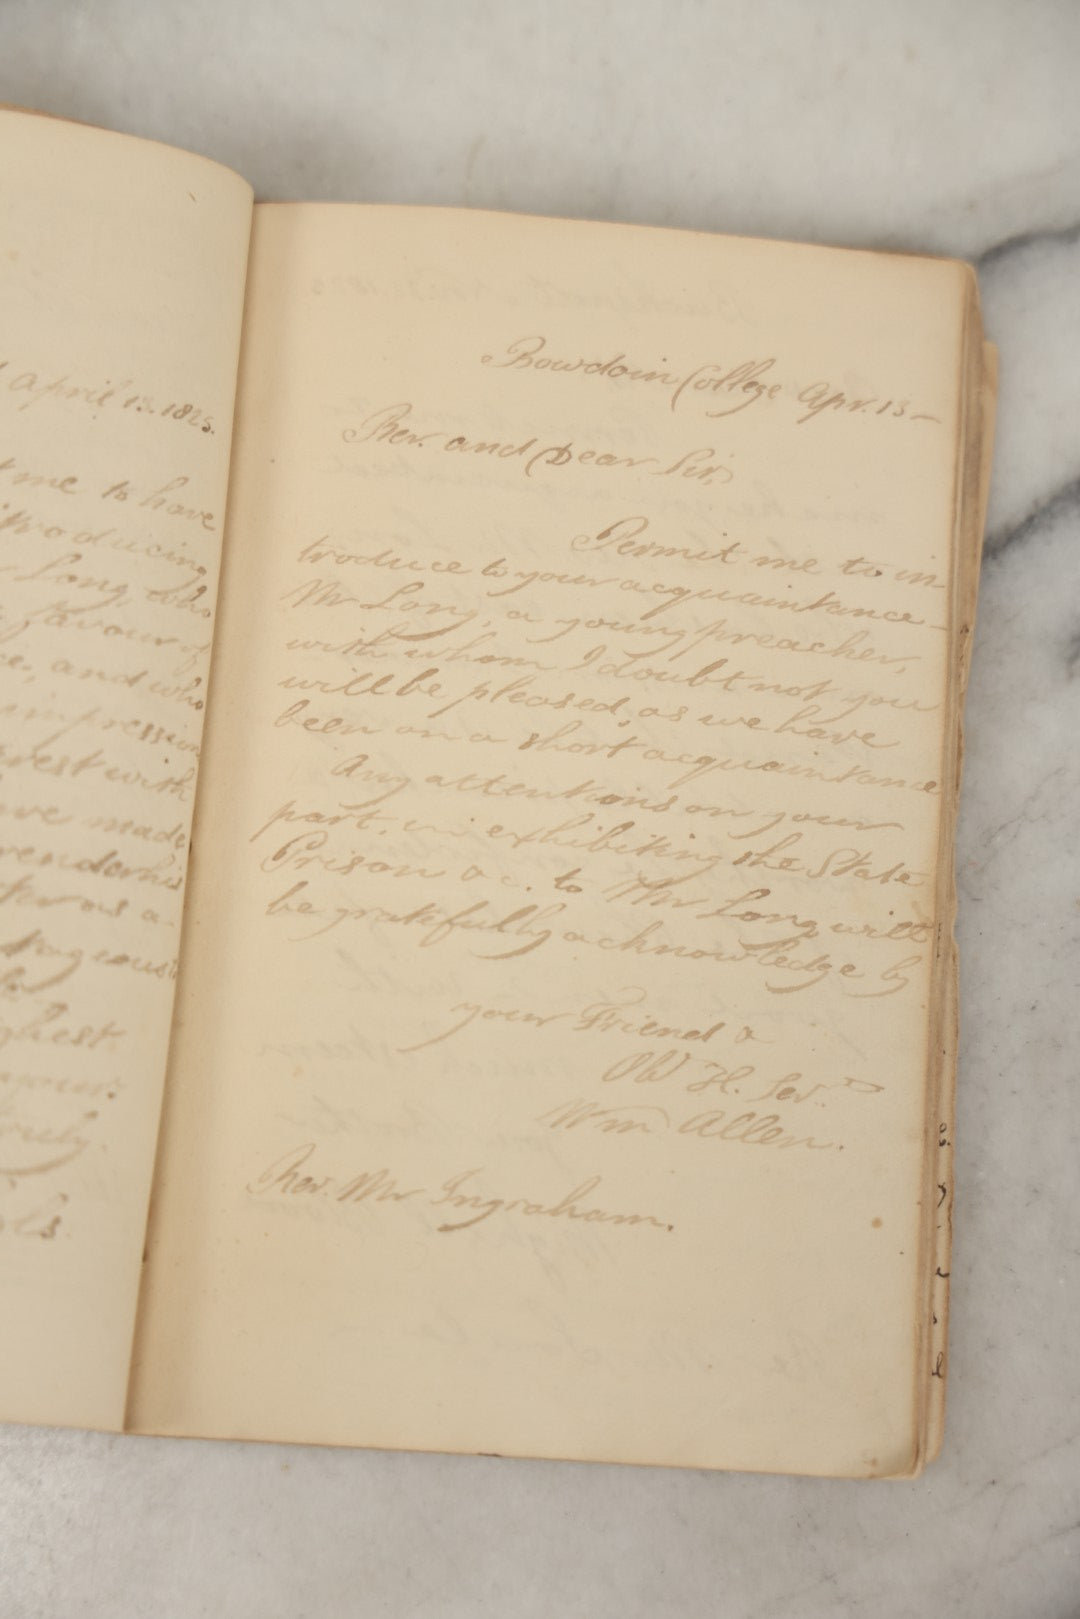 April 13. 1825.
me to have
troducing
Long, who
favour of
and who
impression
rest with
ve made
render his
ter as a
ghest
truly
Bowdoin College Apr. 13 —
Rev. and Dear Sir,
Permit me to in-
troduce to your acquaintance —
Mr Long, a young preacher,
with whom I doubt not you
will be pleased, as we have
been on a short acquaintance
Any attentions on your
part, in exhibiting the State
Prison &c. to Mr Long will
be gratefully acknowledge by
your Friend &
Obt H. Servt
Wm Allen.
Rev. Mr Ingraham.